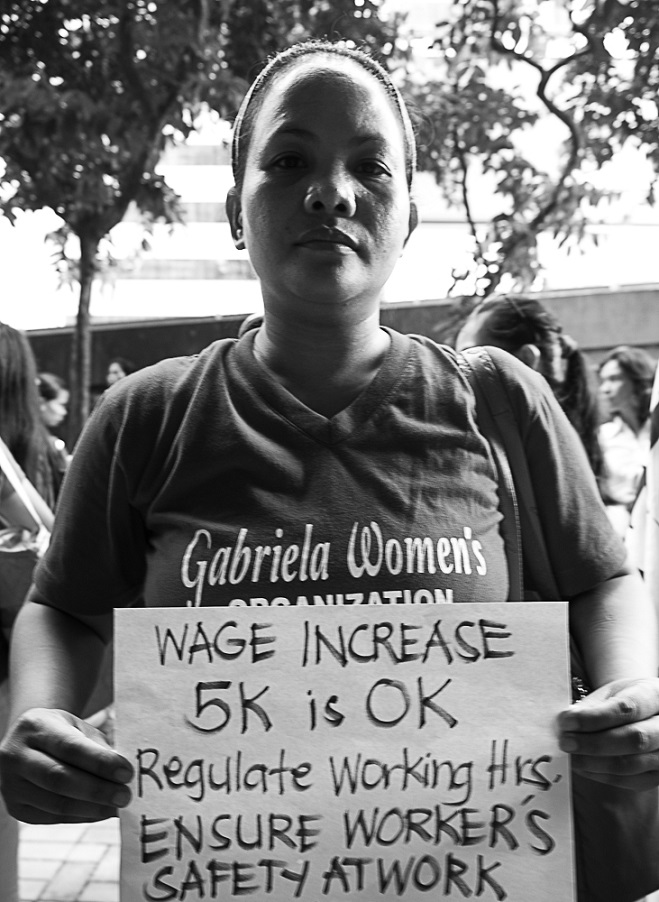 Gabriela Women's
ORGANIZATION
WAGE INCREASE
5K is OK
Regulate Working Hrs.
ENSURE WORKER'S
SAFETY AT WORK